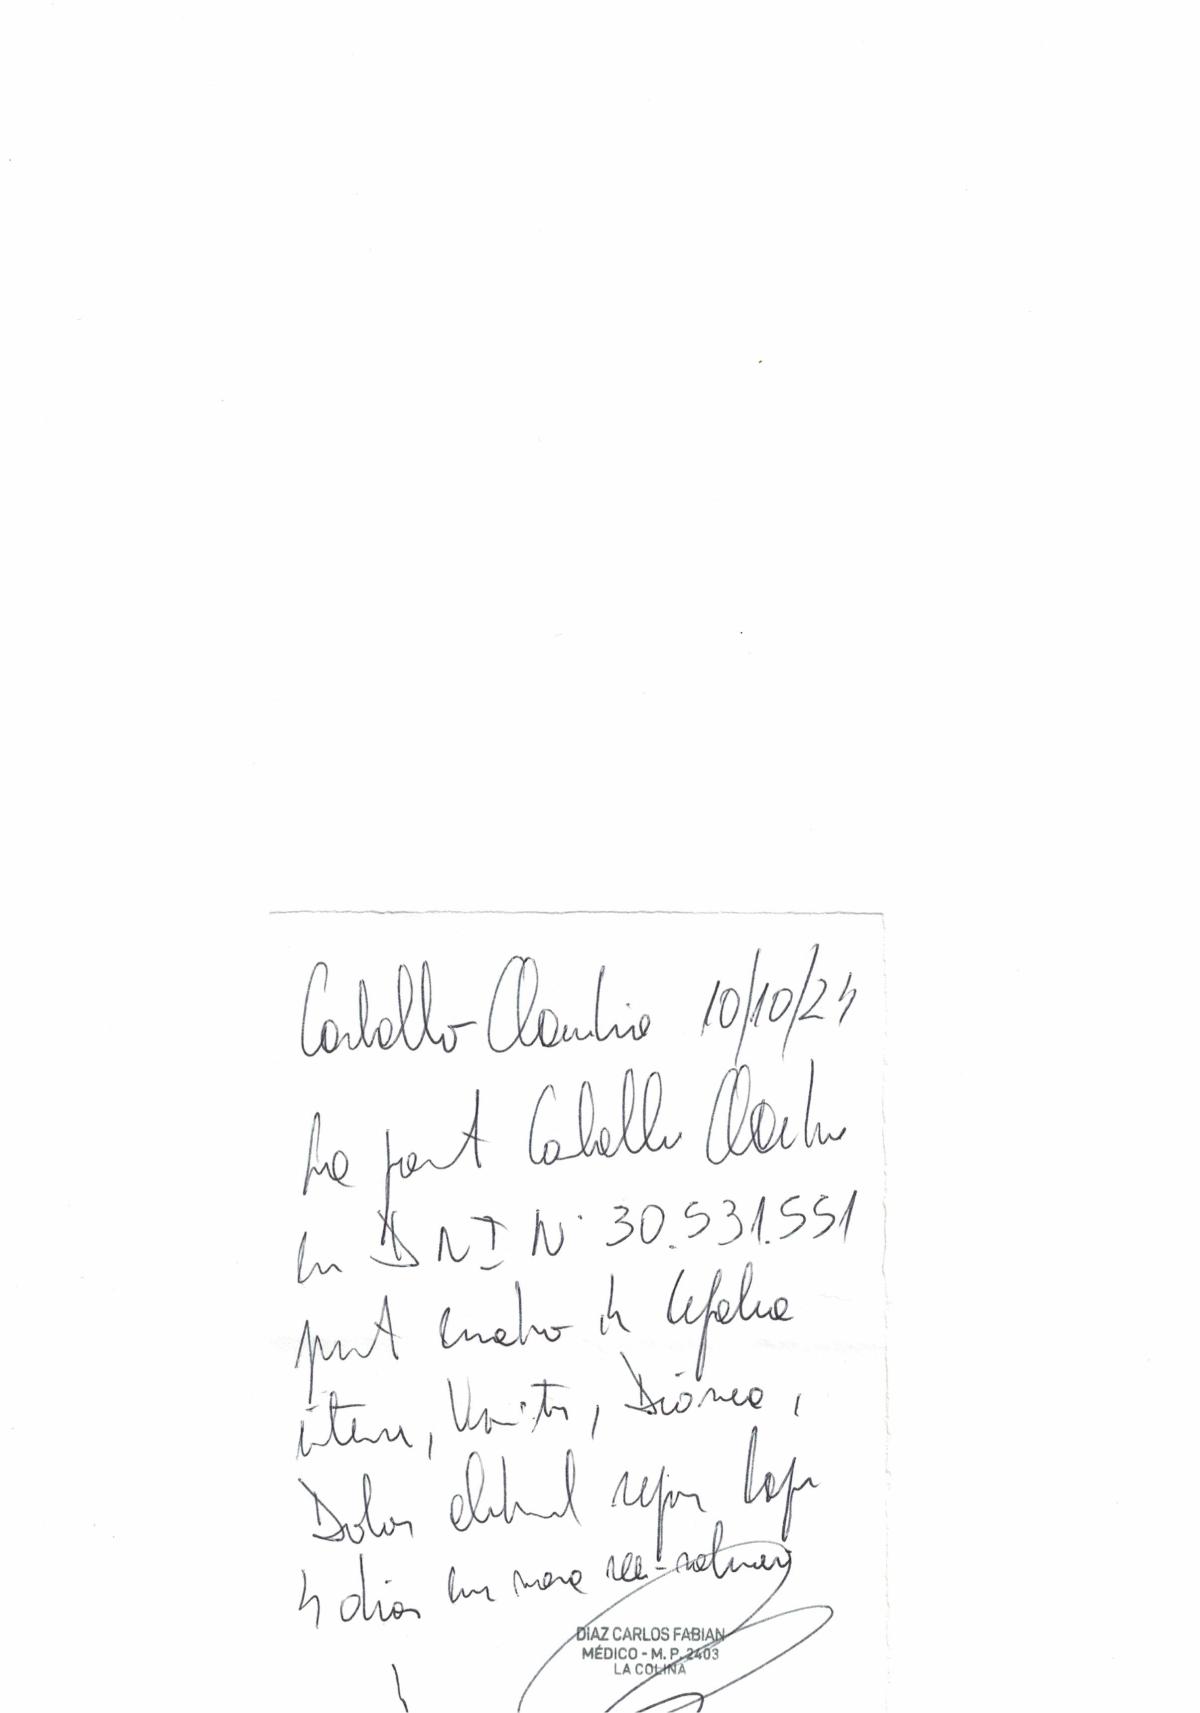 Carballo Claudia 10/10/24
La pact Caballo Claudia
con DNI N° 30.531.551
pret cuadro de Cefalea
intensa, Vomitos, Diarrea,
Dolor abdominal reposo
4 dias
DÍAZ CARLOS FABIAN
MÉDICO - M. P. 2403
LA COLINA